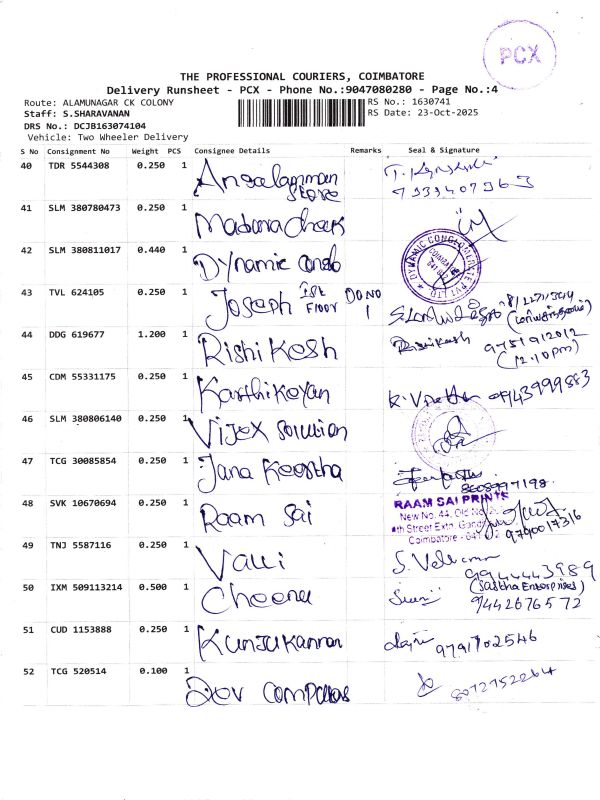 PCX
THE PROFESSIONAL COURIERS, COIMBATORE
Delivery Runsheet - PCX - Phone No.:9047080280 - Page No.:4
Route: ALAMUNAGAR CK COLONY
RS No.: 1630741
Staff: S.SHARAVANAN
RS Date: 23-Oct-2025
DRS No.: DCJB163074104
Vehicle: Two Wheeler Delivery
S No Consignment No Weight PCS Consignee Details Remarks Seal & Signature
40 TDR 5544308 0.250 1 Angalamman Store
41 SLM 380780473 0.250 1
42 SLM 380811017 0.440 1 Dynamic Conglo
DYNAMIC CONGLOMERATE PVT LTD
43 TVL 624105 0.250 1 Joseph Ist Floor DO NO 1
44 DDG 619677 1.200 1 Rishikesh Rishikesh 9751912012
(12:10pm)
45 CDM 55331175 0.250 1 Karthikeyan
46 SLM 380806140 0.250 1 Vijex Solution
47 TCG 30085854 0.250 1 Jana
8608997198
48 SVK 10670694 0.250 1 Raam Sai
RAAM SAI PRINTS
New No. 44, Old No.
4th Street Extn. Gandhi
Coimbatore - 641
9790017316
49 TNJ 5587116 0.250 1 Valli
9944443989
50 IXM 509113214 0.500 1 Cheenu
(Sastha Enterprises)
9442676572
51 CUD 1153888 0.250 1 Kunjukannan 9791702546
52 TCG 520514 0.100 1 Dev
8072752264